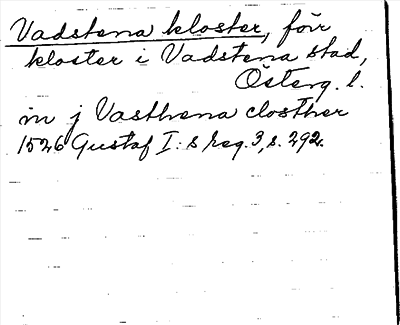 Vadstena kloster, förr
kloster i Vadstena stad,
Österg. l.
in j Vasthena closther
1526 Gustaf I:s reg. 3, s. 292.